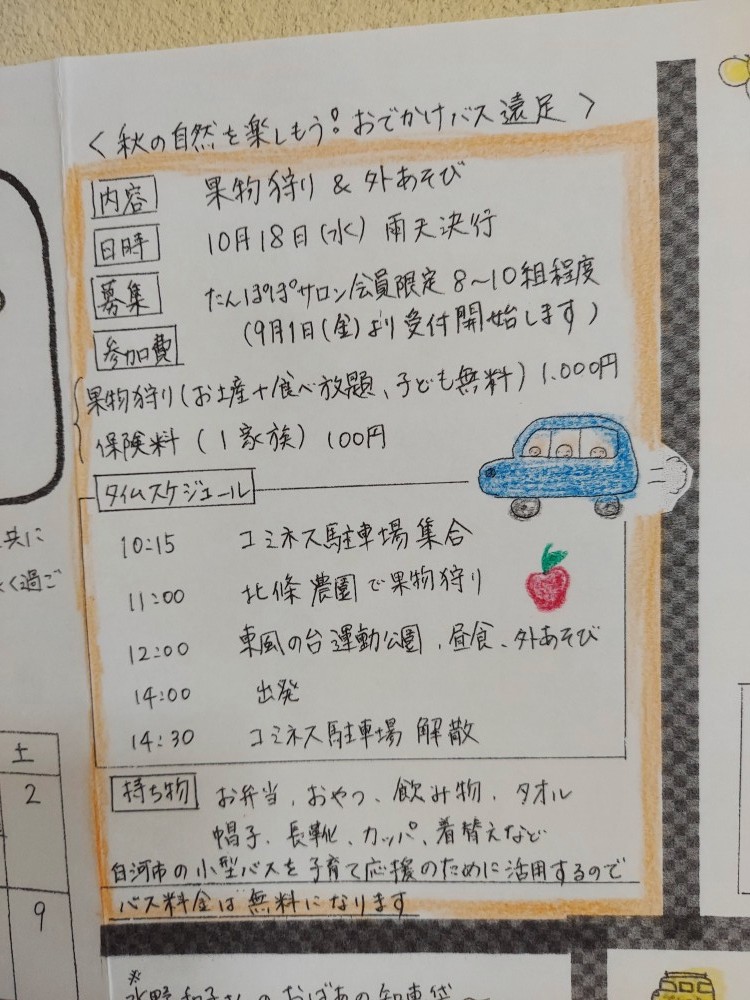 〈 秋の自然を楽しもう! おでかけバス遠足 〉
内容 果物狩り & 外あそび
日時 10月18日(水) 雨天決行
募集 たんぽぽサロン会員限定 8〜10組程度
(9月1日(金)より受付開始します)
参加費
果物狩り(お土産+食べ放題、子ども無料) 1.000円
保険料 (1家族) 100円
タイムスケジュール
10:15 コミネス駐車場集合
11:00 北條農園で果物狩り
12:00 東風の台運動公園、昼食、外あそび
14:00 出発
14:30 コミネス駐車場 解散
持ち物 お弁当、おやつ、飲み物、タオル
帽子、長靴、カッパ、着替えなど
白河市の小型バスを子育て応援のために活用するので
バス料金は無料になります
共に
く過ご
土
2
9
※